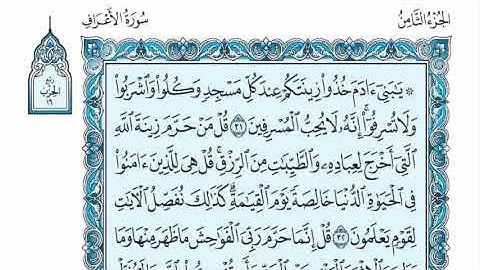 سُورَةُ الأَعْرَافِ
الجُزْءُ الثَّامِنُ
رُبْع
الحِزْب
١٦
۞ يَـٰبَنِىٓ ءَادَمَ خُذُوا۟ زِينَتَكُمْ عِندَ كُلِّ مَسْجِدٍ وَكُلُوا۟ وَٱشْرَبُوا۟
وَلَا تُسْرِفُوٓا۟ ۚ إِنَّهُۥ لَا يُحِبُّ ٱلْمُسْرِفِينَ ٣١ قُلْ مَنْ حَرَّمَ زِينَةَ ٱللَّهِ
ٱلَّتِىٓ أَخْرَجَ لِعِبَادِهِۦ وَٱلطَّيِّبَـٰتِ مِنَ ٱلرِّزْقِ ۚ قُلْ هِىَ لِلَّذِينَ ءَامَنُوا۟
فِى ٱلْحَيَوٰةِ ٱلدُّنْيَا خَالِصَةً يَوْمَ ٱلْقِيَـٰمَةِ ۗ كَذَٰلِكَ نُفَصِّلُ ٱلْـَٔايَـٰتِ
لِقَوْمٍ يَعْلَمُونَ ٣٢ قُلْ إِنَّمَا حَرَّمَ رَبِّىَ ٱلْفَوَٰحِشَ مَا ظَهَرَ مِنْهَا وَمَا